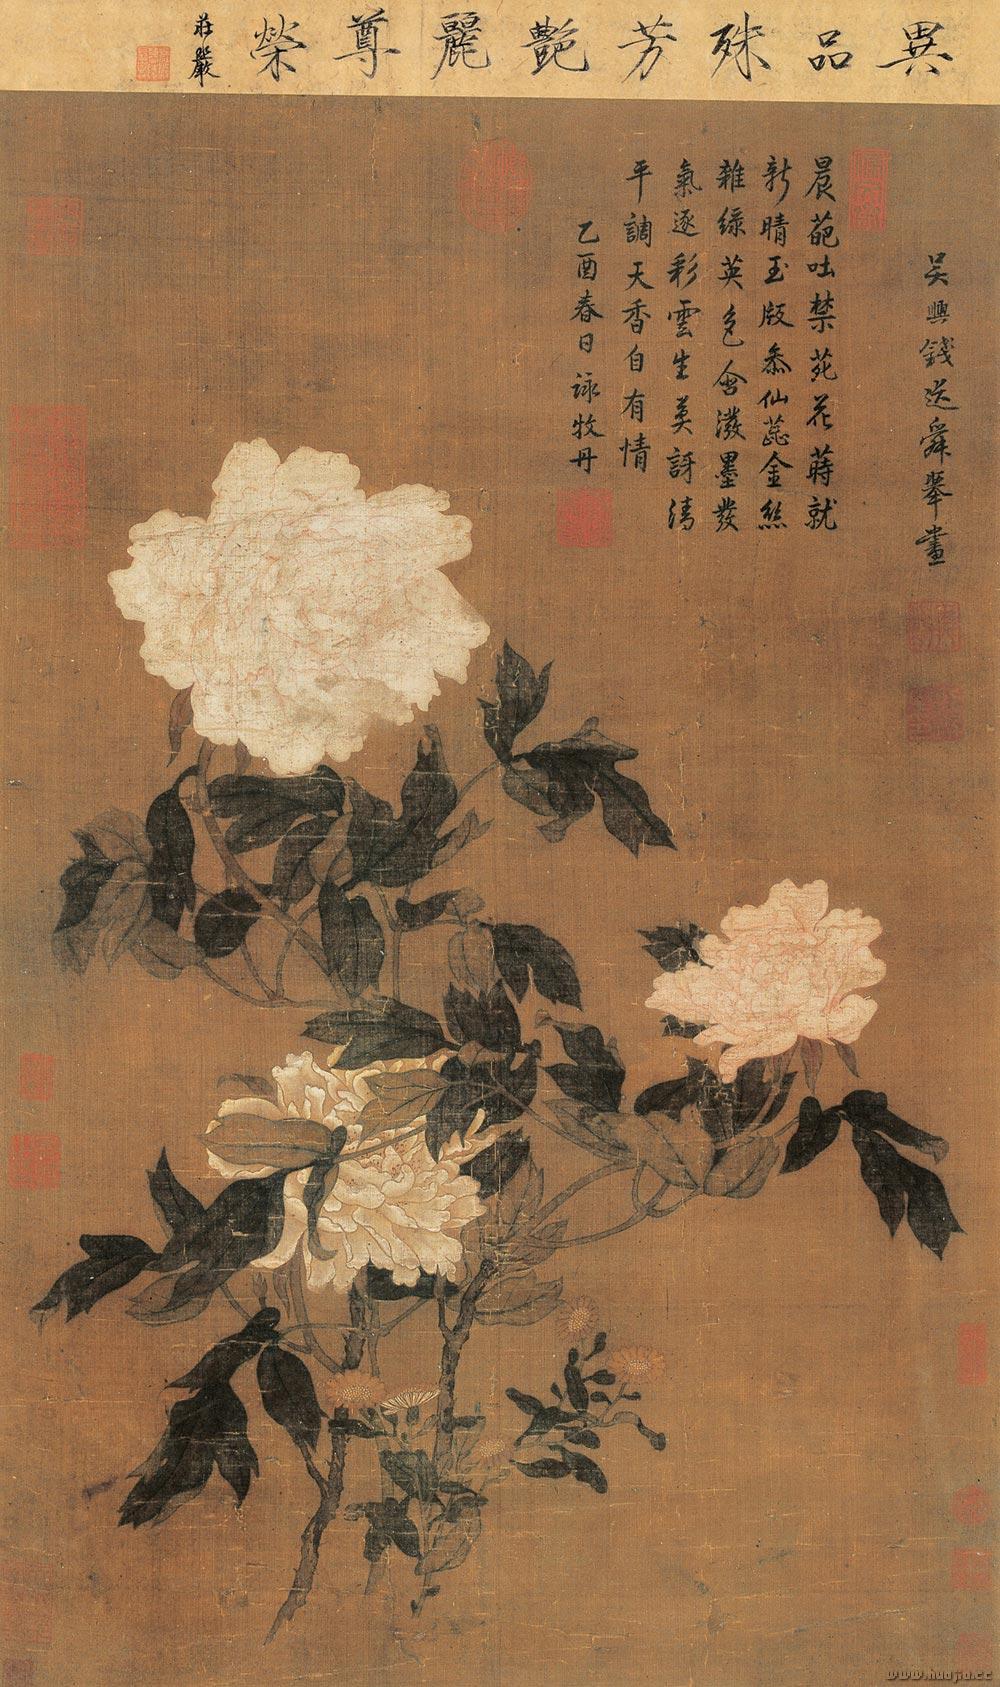 異品殊芳艷麗尊榮
莊嚴
吳興錢選舜舉畫
晨葩吐禁苑花蒔就
新晴玉版叅仙蕋金絲
雜綠英色含潑墨發
氣逐彩雲生莫訝清
平調天香自有情
乙酉春日詠牧丹
www.huajia.cc